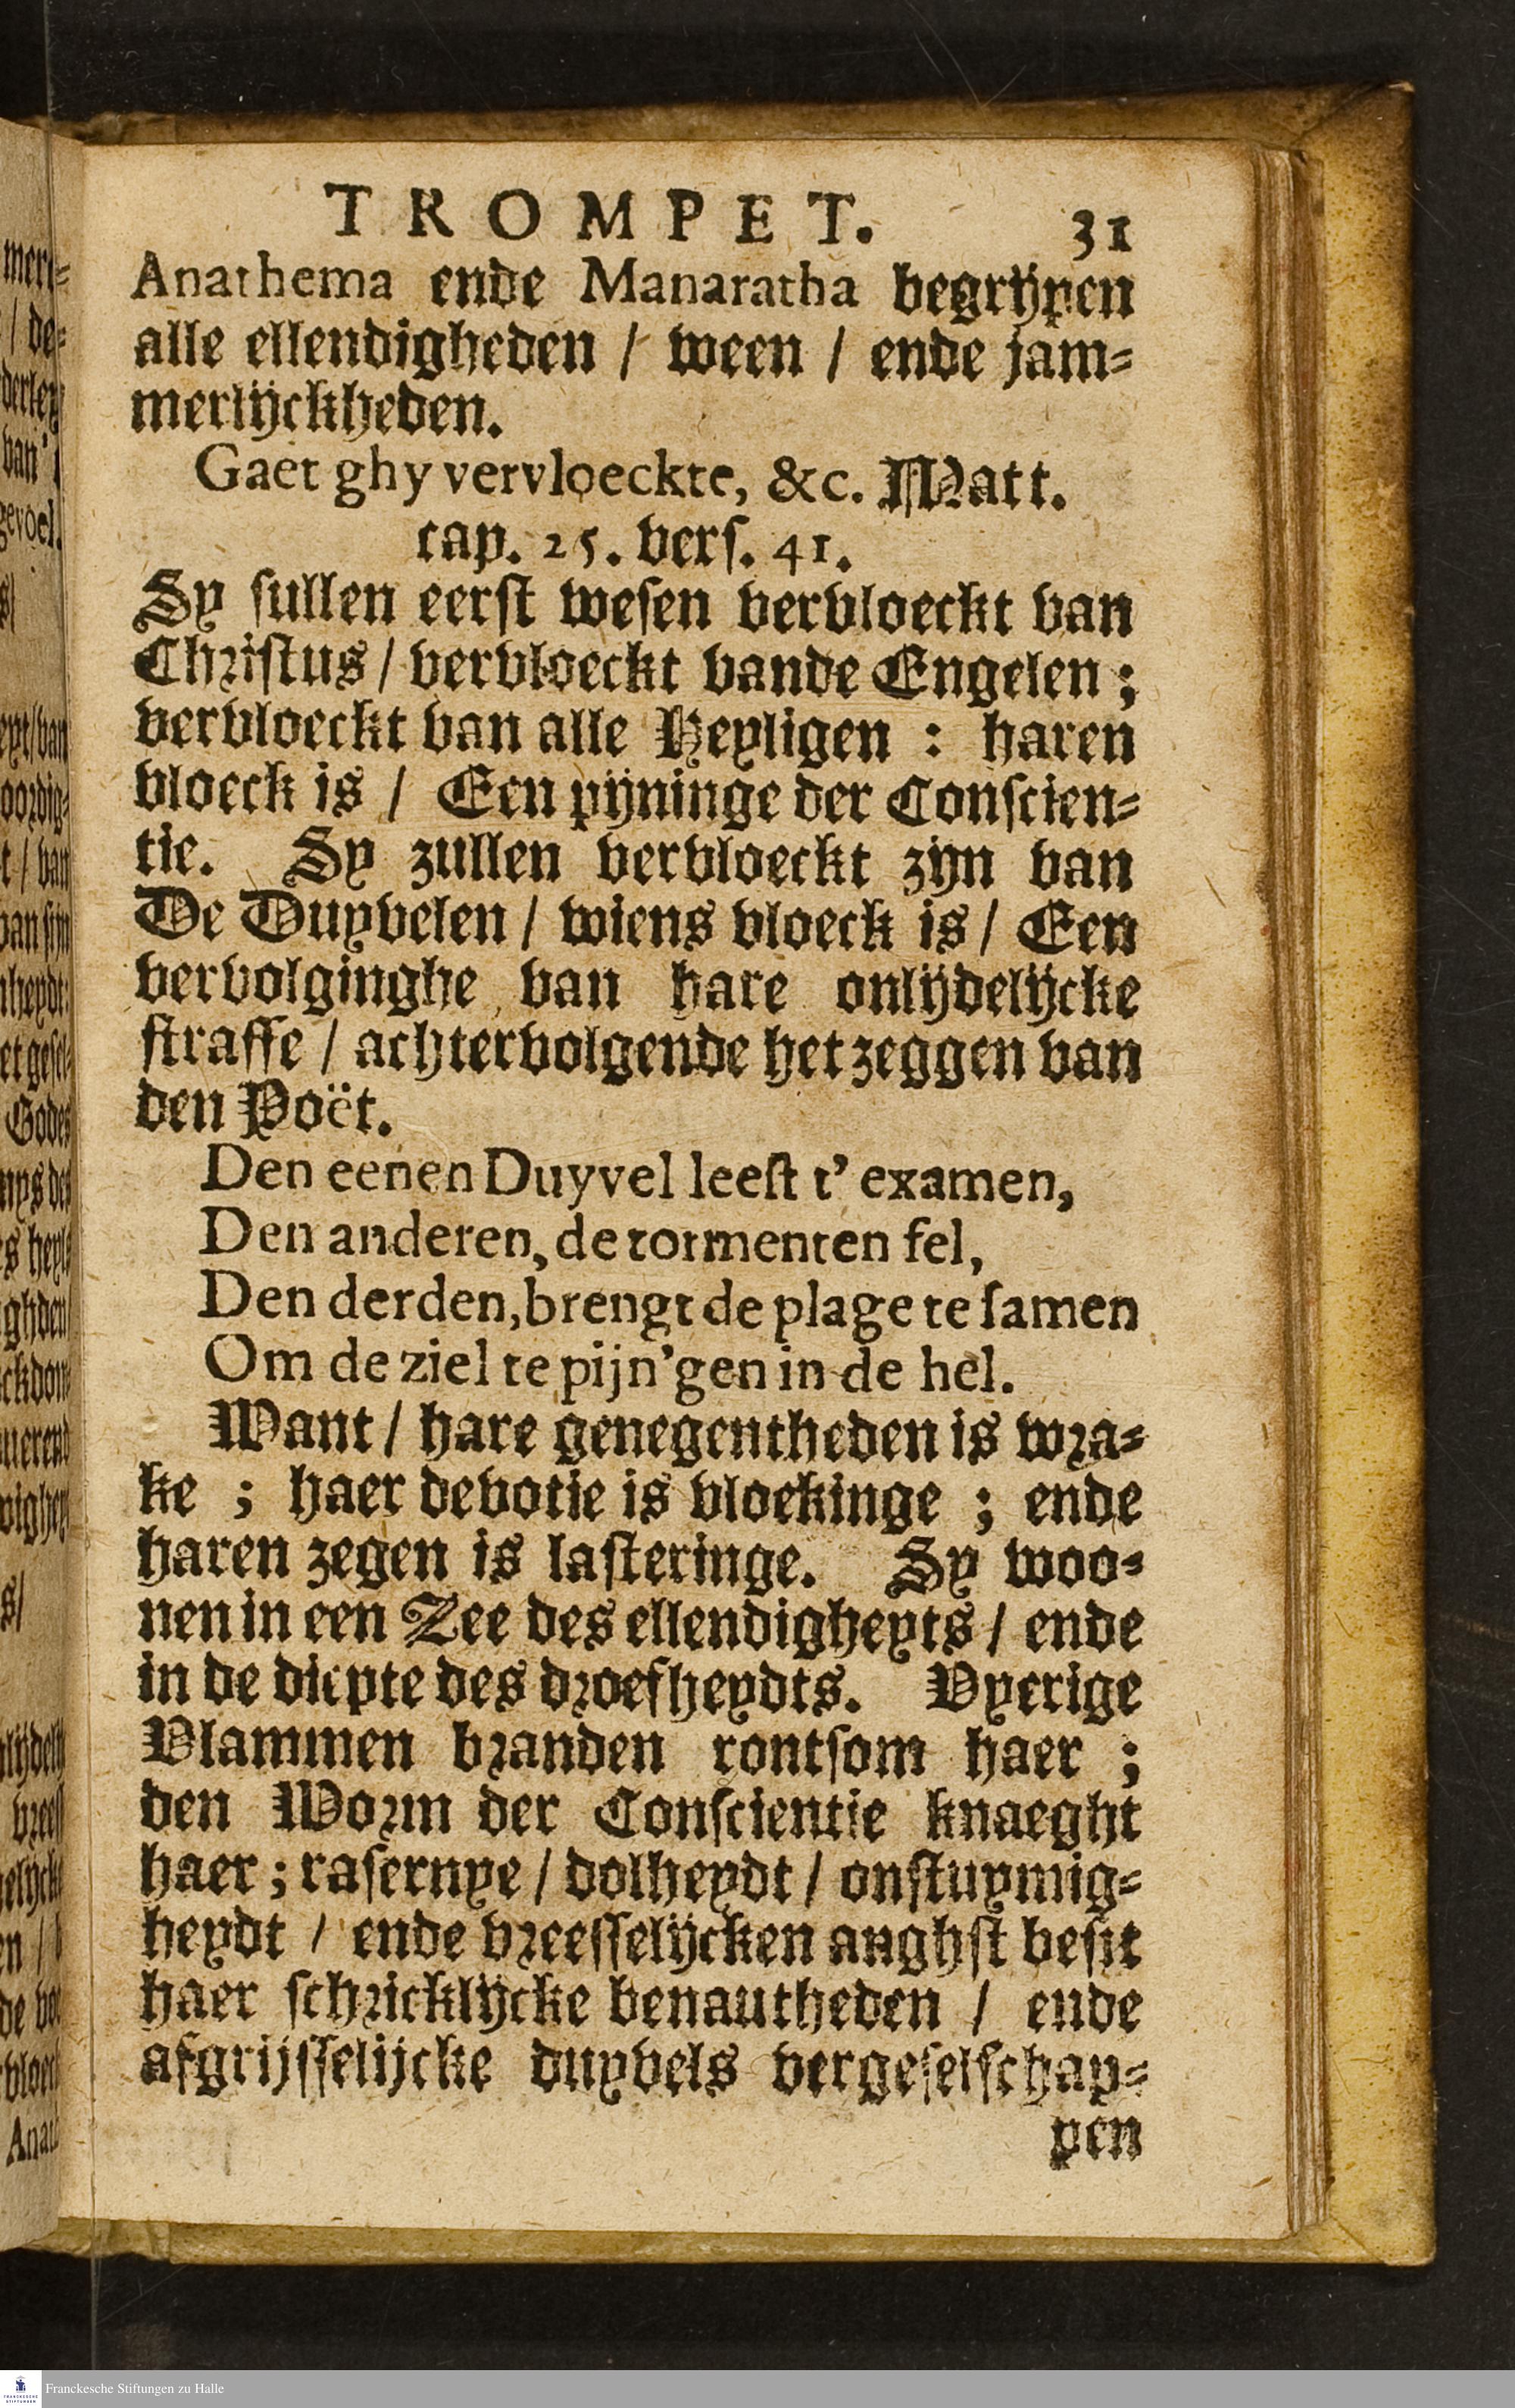 TROMPET. 31
Anathema ende Manaratha begrijpen
alle ellendigheden / ween / ende jam-
merlijckheden.
Gaet ghy vervloeckte, &c. Matt.
cap. 25. vers. 41.
Sy sullen eerst wesen vervloeckt van
Christus / vervloeckt vande Engelen ;
vervloeckt van alle Heyligen : haren
vloeck is / Een pijninge der Conscien-
tie. Sy zullen vervloeckt zijn van
De Duyvelen / wiens vloeck is / Een
vervolginghe van hare onlijdelijcke
straffe / achtervolgende het zeggen van
den Poët.
Den eenen Duyvel leest t' examen,
Den anderen, de tormenten fel,
Den derden, brengt de plage te samen
Om de ziel te pijn'gen in de hel.
Want / hare genegentheden is wra-
ke ; haer devotie is vloekinge ; ende
haren zegen is lasteringe. Sy woo-
nen in een Zee des ellendigheyts / ende
in de diepte des droefheydts. Vyerige
Vlammen branden rontsom haer ;
den Worm der Conscientie knaeght
haer ; rasernye / dolheydt / onstuymig-
heydt / ende vreesselijcken anghst besit
haer schricklijcke benautheden / ende
afgrijsselijcke duyvels vergeselschap-
pen
Franckesche Stiftungen zu Halle